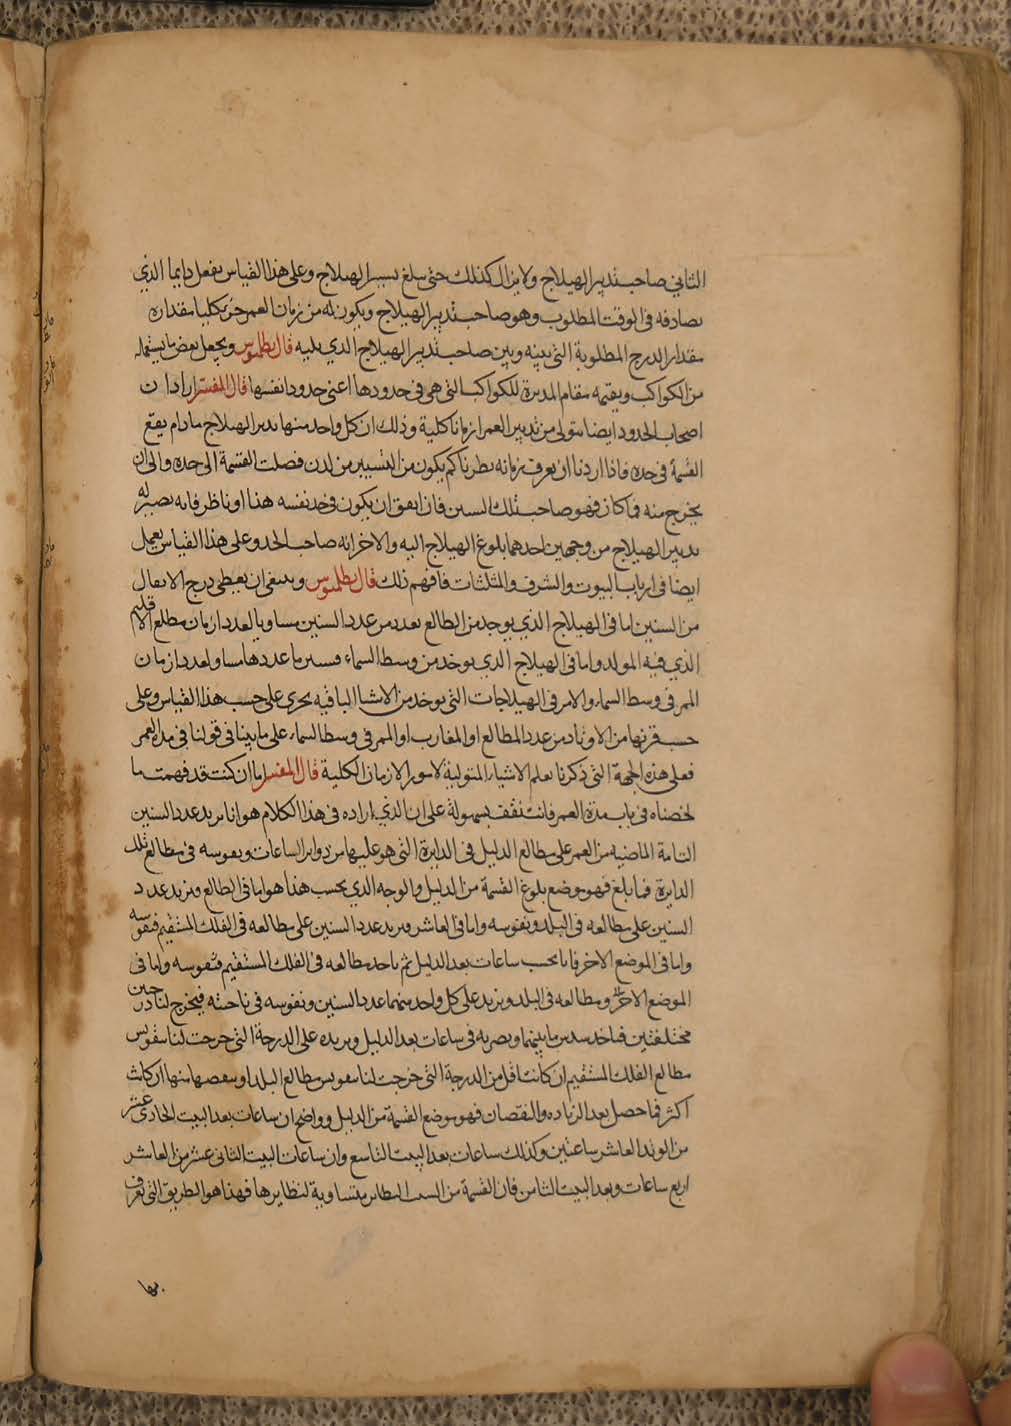 الثاني صاحب تدبير الهيلاج ولا يزال كذلك حتى يبلغ تسيير الهيلاج وعلى هذا القياس يفعل دايما الذي
يصادفه في الوقت المطلوب وهو صاحب تدبير الهيلاج ويكون له من زمان العمر جزء كليا مقداره
مقدار الدرج المطلوبة التي بينه وبين صاحب تدبير الهيلاج الذي يليه قال بطلميوس ويجعل بعض ما يستعمله
من الكواكب ويقيمه مقام المدبرة للكواكب التي هي في حدودها اعني حدود انفسها قال المفسر اراد ان
اصحاب الحدود ايضا يتولى من تدبير العمر ازمانا كلية وذلك ان كل واحد منها يدبر الهيلاج ما دام يقع
القسمة في حده فاذا اردنا ان نعرف زمانه نظرنا كم يكون من التسيير من لدن فصلت القسمة الى حده والى ان
يخرج منه فما كان فهو صاحب تلك السنين فان اتفق ان يكون في حد نفسه هذا او ناظر فانه يصير له
تدبير الهيلاج من وجهين احدهما بلوغ الهيلاج اليه والاخر انه صاحب الحد وعلى هذا القياس يعمل
ايضا في ارباب البيوت والشرف والمثلثات فافهم ذلك قال بطلميوس وينبغي ان يعطى درج الاتصال
من السنين اما في الهيلاج الذي يوجد من الطالع بعدد من عدد السنين مساويا لعدد ازمان مطلع الاقليم
الذي فيه المولد واما في الهيلاج الذي يوخذ من وسط السماء فسنين ما عددها مساو لعدد ازمان
الممر في وسط السماء والامر في الهيلاجات التي توخذ من الاشيا الباقيه يجري على حسب هذا القياس وعلى
حسب قربها من الاوتاد من عدد المطالع او المغارب او الممر في وسط السماء على ما بينا في قولنا في مدة العمر
فعلى هذه الجهة التي ذكرنا نعلم الاشياء المتولية لامور الازمان الكلية قال المفسر اما ان كنت قد فهمت ما
لخصناه في باب مدة العمر فانت تقف بسهولة على ان الذي اراده في هذا الكلام هو انا نزيد عدد السنين
التامة الماضيه من العمر على مطالع الدليل في الدايرة التي هو عليها من دواير الساعات ونقوسه في مطالع تلك
الدايرة فما بلغ فهو موضع بلوغ القسمة من الدليل والوجه الذي يحسب هذا هو اما في الطالع فنزيد عدد
السنين على مطالعه في البلد ونقوسه واما في العاشر فنزيد عدد السنين على مطالعه في الفلك المستقيم فنقوسه
واما في الموضع الاخر فانا نحسب ساعات بعد الدليل ثم ناخذ مطالعه في الفلك المستقيم فنقوسه واما في
الموضع الاخر ومطالعه في البلد ونزيد على كل واحد منهما عدد السنين ونقوسه في ناحيته فيخرج لنا درجين
مختلفتين فناخذ سدس ما بينهما ونضربه في ساعات بعد الدليل ونزيده على الدرجة التي خرجت لنا بتقويس
مطالع الفلك المستقيم ان كانت اقل من الدرجة التي خرجت لنا بتقويس مطالع البلد او ننقصها منها ان كانت
اكثر فما حصل بعد الزياده والنقصان فهو موضع القسمة من الدليل وواضح ان ساعات بعد البيت الحادي عشر
من الوتد العاشر ساعتين وكذلك ساعات بعد البيت التاسع وان ساعات البيت الثاني عشر من العاشر
اربع ساعات وبعد البيت الثامن فان القسمة من الست النظاير متساوية لنظايرها فهذا هو الطريق التي نعرف
بها